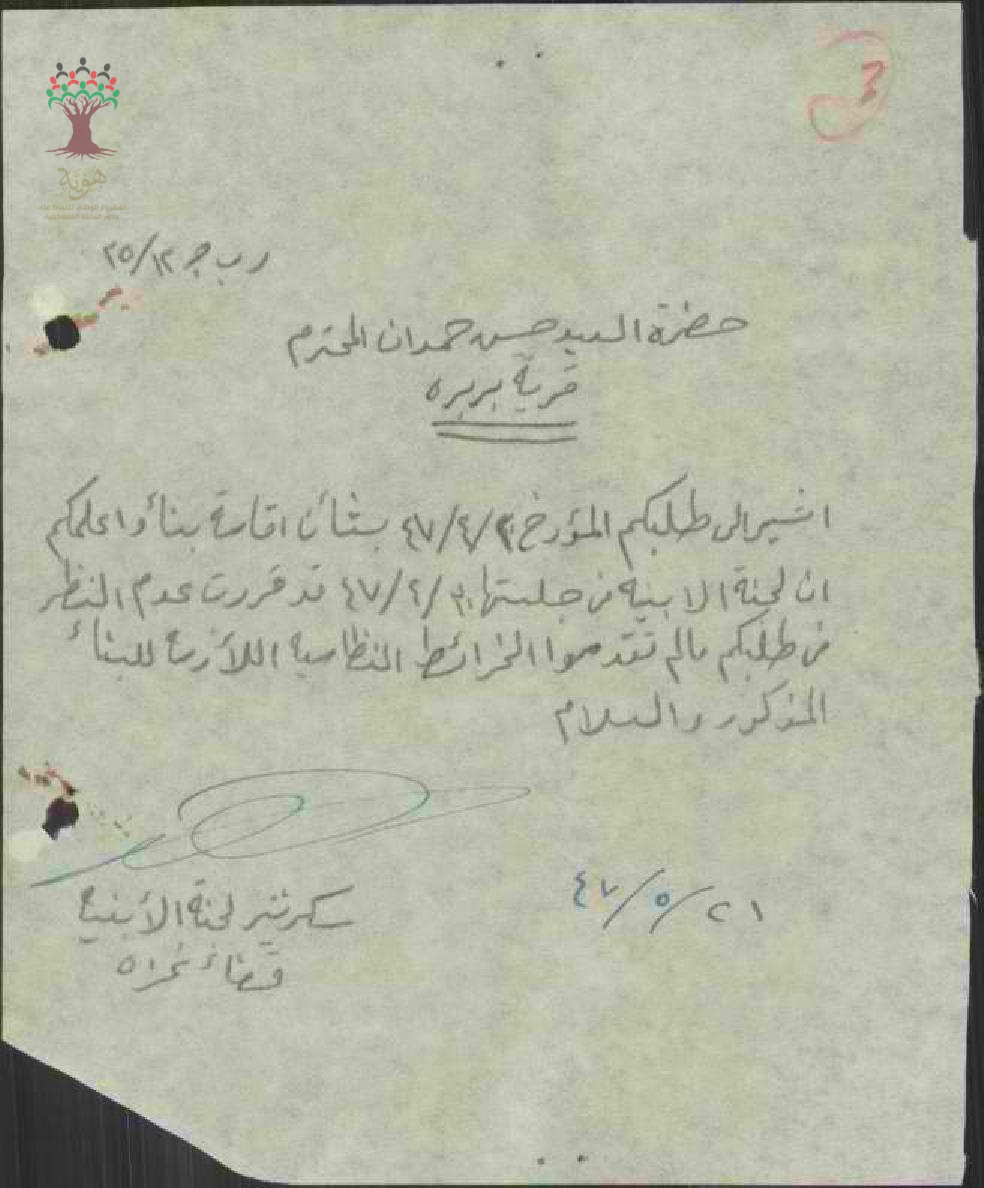 3
هوية
المشروع الوطني للحفاظ على
جذور العائلة الفلسطينية
ر ب ج ٢٥/١٢
حضرة السيد حسن حمدان المحترم
قرية بربره
اشير الى طلبكم المؤرخ ٤٧/٤/ بشأن اقامة بناء واعلمكم
ان لجنة الابنية في جلستها ٤٧/ قد قررت عدم النظر
في طلبكم مالم تقدموا الخرائط النظامية اللازمة للبناء
المذكور والسلام
٤٧/٥/٢١
سكرتير لجنة الأبنية
قضاء غزه